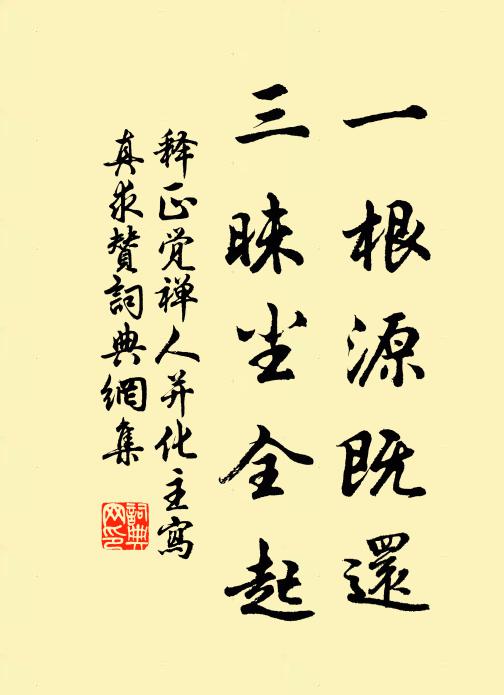 一根源既還
三昧尘全起
释正觉禅人并化主寫
真求賛詞典網集
詞典
网印